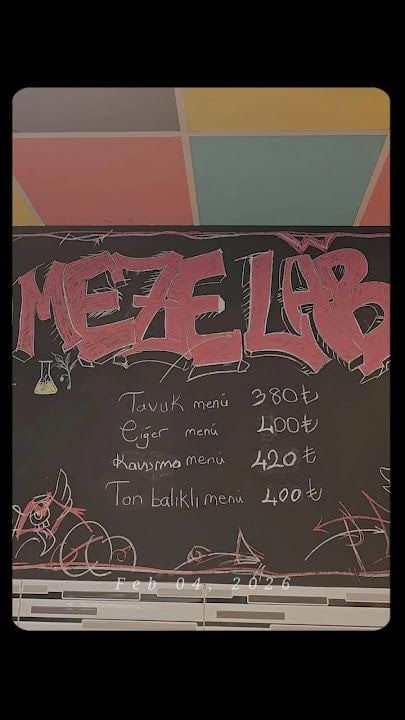 MEZE LAB
Tavuk menü 380₺
Ciğer menü 400₺
Kavurma menü 420₺
Ton balıklı menü 400₺
Feb 04, 2026